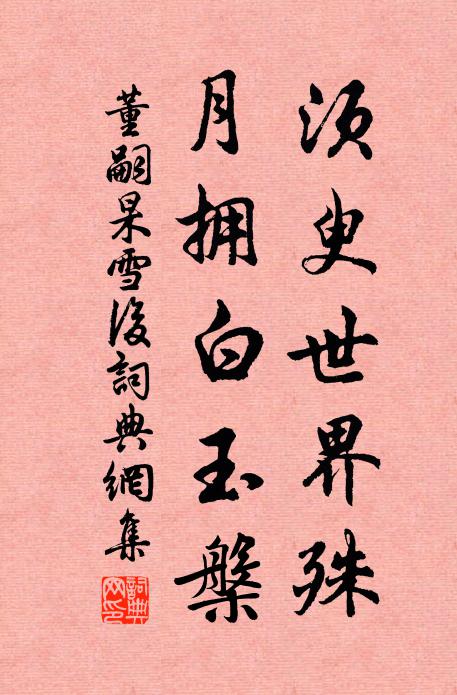 須臾世界殊
月拥白玉槃
董嗣杲雪後詞典網集
詞典网印